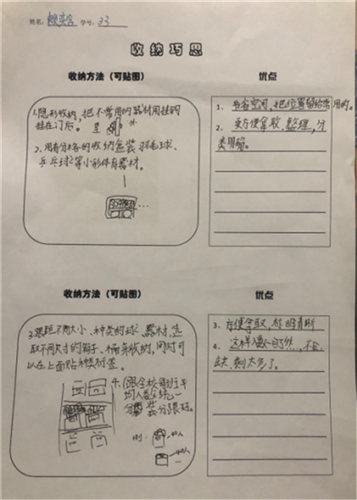 姓名: 学号: 23
收纳巧思
收纳方法（可贴图）
优点
1.隐形收纳，把不常用的器材用挂钩
挂在门后。
2.用有分格的收纳盒装羽毛球、
乒乓球等小形体育器材。
1. 节省空间，把位置留给常用的。
2. 更方便拿取、整理，分
类明确。
收纳方法（可贴图）
优点
3.跟据不同大小、种类的球、器材,选
取不同尺寸的箱子、桶来收纳,同时可
以在上面贴标签。
4.
分
3. 方便拿取，
4. 这样 不会
缺、剩太多了。